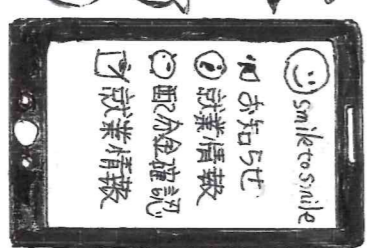 smile to smile
お知らせ
就業情報
配分金確認
就業情報